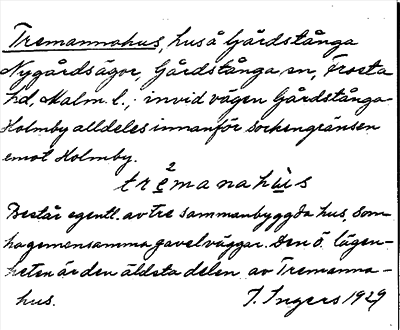 Tremannahus, hus å Gårdstånga
Nygårds ägor, Gårdstånga sn, Frosta
hd, Malm. l.; invid vägen Gårdstånga-
Holmby alldeles innanför sockengränsen
emot Holmby.
tre²manahùs
Består egentl. av tre sammanbyggda hus, som
ha gemensamma gavelväggar. Den ö. lägen-
heten är den äldsta delen av Tremanna-
hus. I. Ingers 1929